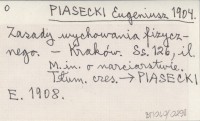 O PIASECKI Eugeniusz 1904.
Zasady wychowania fizycz-
nego. – Kraków. Ss. 126, il.
M. in. o narciarstwie.
Tłum. czes. → PIASECKI
E. 1908.